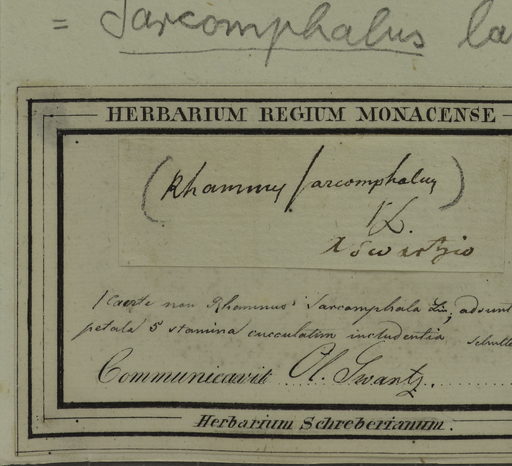 = Sarcomphalus la
HERBARIUM REGIUM MONACENSE
(Rhamnus sarcomphalus)
L.
a Swartzio
certe non Rhamnus Sarcomphala Lin; adsunt
petala 5 stamina cucculatim includentia
Communicavit Ol. Swartz.
Herbarium Schreberianum.